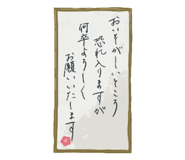 おいそがしいところ
恐れ入りますが
何卒よろしく
お願いいたします